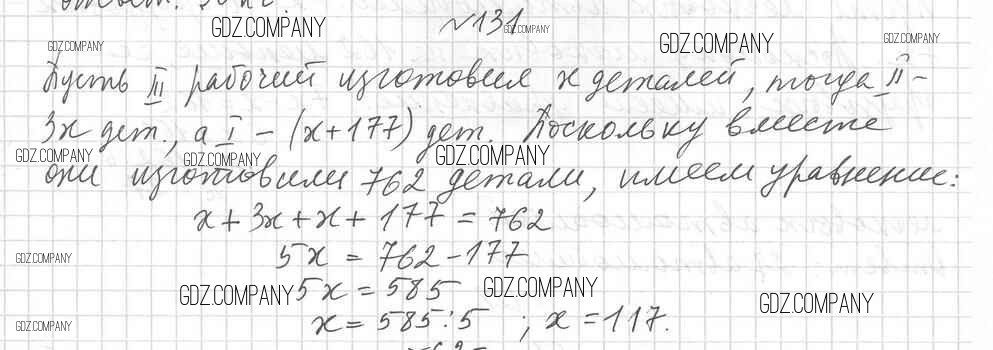 ответ: 50 кг.
№131
Пусть III рабочий изготовил x деталей, тогда II –
3x дет., а I – (x+177) дет. Поскольку вместе
они изготовили 762 детали, имеем уравнение:
x + 3x + x + 177 = 762
5x = 762 - 177
5x = 585
x = 585:5 ; x = 117.
GDZ.COMPANY
GDZ.COMPANY
GDZ.COMPANY
GDZ.COMPANY
GDZ.COMPANY
GDZ.COMPANY
GDZ.COMPANY
GDZ.COMPANY
GDZ.COMPANY
GDZ.COMPANY
GDZ.COMPANY
GDZ.COMPANY
GDZ.COMPANY